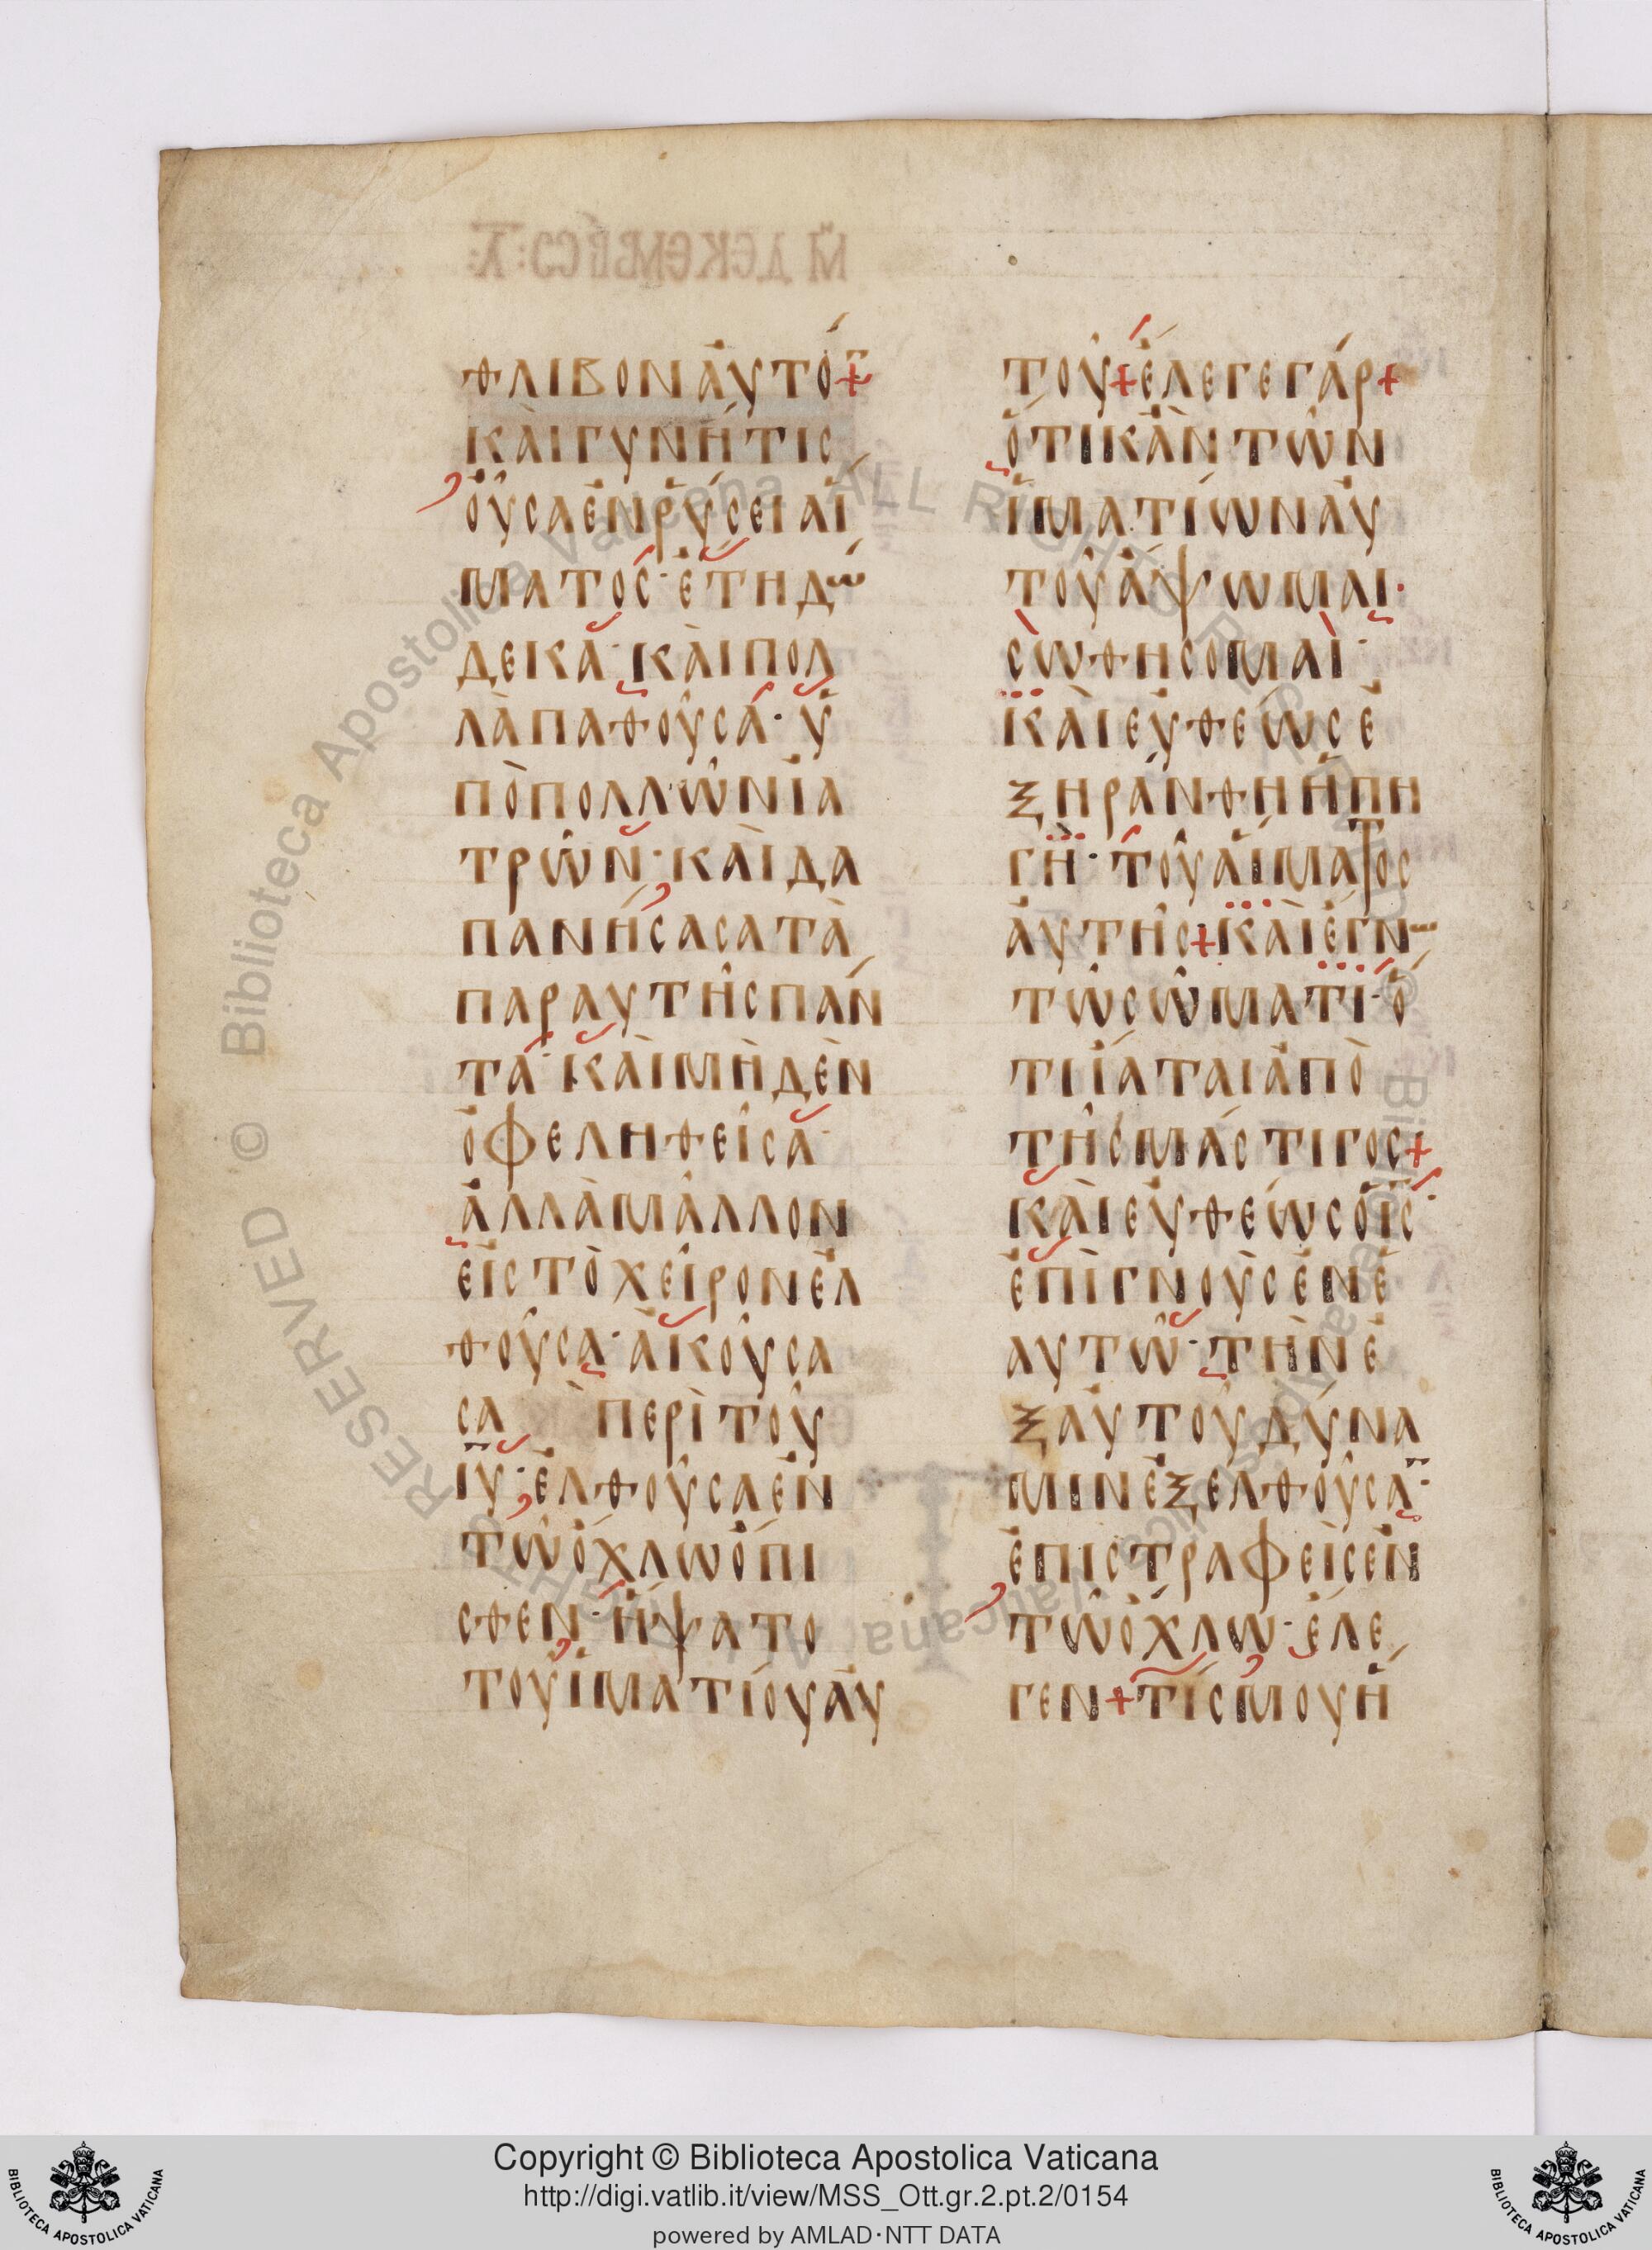 θλιβοναὐτό
κὰιγυνήτις
ὀῦσαἐνῥύσειαἵ
ματος· ἔτηδω
δεκα· κὰιπολ
λὰπαθοῦσα· ὑ
πὸπολλῶνϊα
τρῶν· κὰιδα
πανήσασατὰ
παραυτῆςπάν
τα· κὰιμηδὲν
ὀφεληθεῖσα·
ἀλλὰμᾶλλον
εἰςτὸχεῖρονἐλ
θοῦσα· ἀκούσα
σα περὶτοῦ
ιυ· ἐλθοῦσαἐν
τῶὄχλωὄπι
σθεν· ἥψατο
τοῦἱματίουαὐ
τοῦ+ἔλεγεγάρ+
ὅτικἂντῶν
ἱματίωναὐ
τοῦἅψωμαι·
σωθήσομαι·
κὰιευθέωςἐ
ξηράνθηἡπη
γὴ· τοῦαἵματος
ἀυτῆς+κὰιἔγνω
τῶσώματι· ὅ
τιἴαταιἀπὸ
τῆςμάστιγος+
κὰιευθέωςὁις·
ἐπιγνοὺςἐνἑ
αυτῶ· τὴνἐ
ξαὐτοῦδύνα
μινἐξελθοῦσα·
ἐπιστραφεὶςἐν
τῶὄχλω· ἔλε
γεν+τίςμουἥ
Copyright © Biblioteca Apostolica Vaticana
http://digi.vatlib.it/view/MSS_Ott.gr.2.pt.2/0154
powered by AMLAD·NTT DATA
BIBLIOTECA APOSTOLICA VATICANA
BIBLIOTECA APOSTOLICA VATICANA